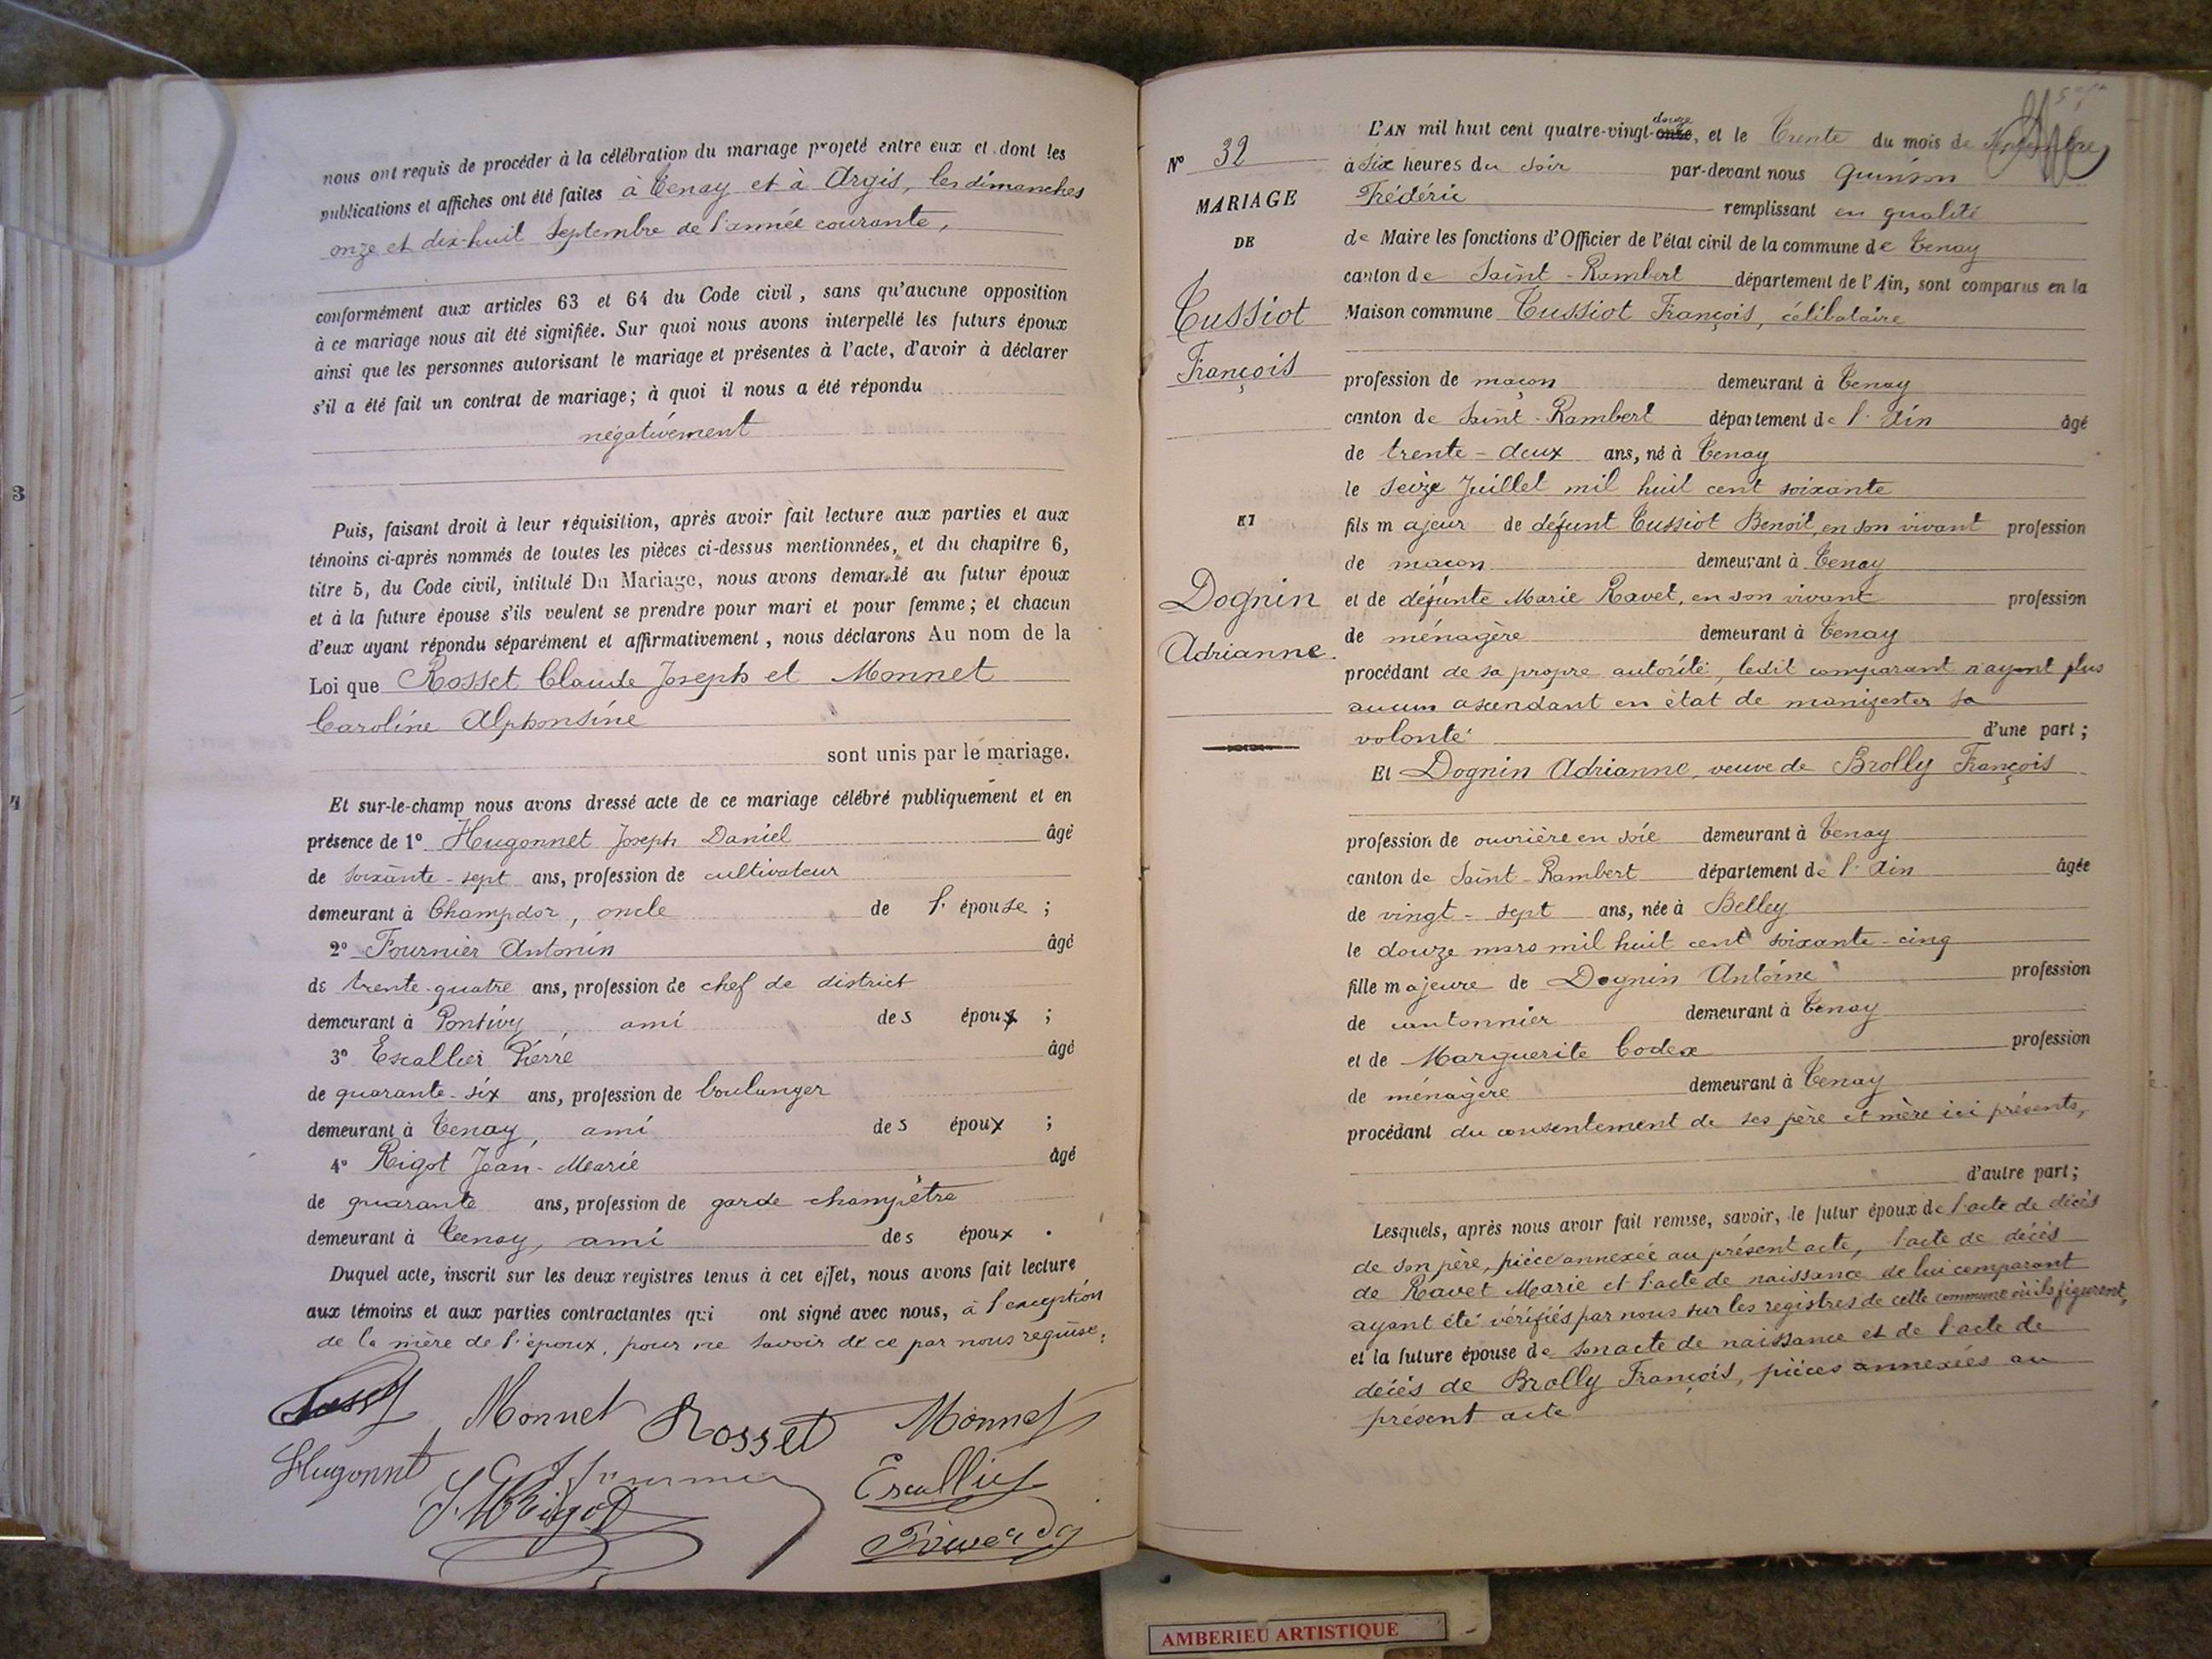 nous ont requis de procéder à la célébration du mariage projeté entre eux et dont les
publications et affiches ont été faites à Tenay et à Argis, les dimanches
onze et dix-huit Septembre de l'année courante,
conformément aux articles 63 et 64 du Code civil, sans qu'aucune opposition
à ce mariage nous ait été signifiée. Sur quoi nous avons interpellé les futurs époux
ainsi que les personnes autorisant le mariage et présentes à l'acte, d'avoir à déclarer
s'il a été fait un contrat de mariage; à quoi il nous a été répondu
négativement
Puis, faisant droit à leur réquisition, après avoir fait lecture aux parties et aux
témoins ci-après nommés de toutes les pièces ci-dessus mentionnées, et du chapitre 6,
titre 5, du Code civil, intitulé Du Mariage, nous avons demandé au futur époux
et à la future épouse s'ils veulent se prendre pour mari et pour femme; et chacun
d'eux ayant répondu séparément et affirmativement, nous déclarons Au nom de la
Loi que Rosset Claude Joseph et Monnet
Caroline Alphonsine
sont unis par le mariage.
Et sur-le-champ nous avons dressé acte de ce mariage célébré publiquement et en
présence de 1° Hugonnet Joseph Daniel âgé
de soixante-sept ans, profession de cultivateur
demeurant à Champdor, oncle de l' épouse ;
2° Fournier Antonin âgé
de trente-quatre ans, profession de chef de district
demeurant à Pontivy, ami des époux ;
3° Escallier Pierre âgé
de quarante-six ans, profession de boulanger
demeurant à Tenay, ami des époux ;
4° Rigot Jean-Marie âgé
de quarante ans, profession de garde champêtre
demeurant à Tenay, ami des époux .
Duquel acte, inscrit sur les deux registres tenus à cet effet, nous avons fait lecture
aux témoins et aux parties contractantes qui ont signé avec nous, à l'exception
de la mère de l'époux, pour ne savoir de ce par nous requise.
Monnet Rosset Monnet
Hugonnet Fournier Escallier
J. M. Rigot
N° 32
MARIAGE
DE
Tussiot
François
ET
Dognin
Adrianne.
L'AN mil huit cent quatre-vingt-onze douze, et le Trente du mois de Septembre
à six heures du soir par-devant nous Quinson
Frédéric remplissant en qualité
de Maire les fonctions d'Officier de l'état civil de la commune de Tenay
canton de Saint-Rambert département de l'Ain, sont comparus en la
Maison commune Tussiot François, célibataire
profession de maçon demeurant à Tenay
canton de Saint-Rambert département de l'Ain âgé
de trente-deux ans, né à Tenay
le seize Juillet mil huit cent soixante
fils majeur de défunt Tussiot Benoit, en son vivant profession
de maçon demeurant à Tenay
et de défunte Marie Ravet, en son vivant profession
de ménagère demeurant à Tenay
procédant de sa propre autorité, ledit comparant n'ayant plus
aucun ascendant en état de manifester sa
volonté d'une part;
Et Dognin Adrianne, veuve de Brolly François
profession de ouvrière en soie demeurant à Tenay
canton de Saint-Rambert département de l'Ain âgée
de vingt-sept ans, née à Belley
le douze mars mil huit cent soixante-cinq
fille majeure de Dognin Antoine profession
de cantonnier demeurant à Tenay
et de Marguerite Codex profession
de ménagère demeurant à Tenay
procédant du consentement de ses père et mère ici présents,
d'autre part;
Lesquels, après nous avoir fait remise, savoir, le futur époux de l'acte de décès
de son père, pièce annexée au présent acte, l'acte de décès
de Ravet Marie et l'acte de naissance de lui comparant
ayant été vérifiés par nous sur les registres de cette commune où ils figurent,
et la future épouse de son acte de naissance et de l'acte de
décès de Brolly François, pièces annexées au
présent acte
3
4
AMBERIEU ARTISTIQUE